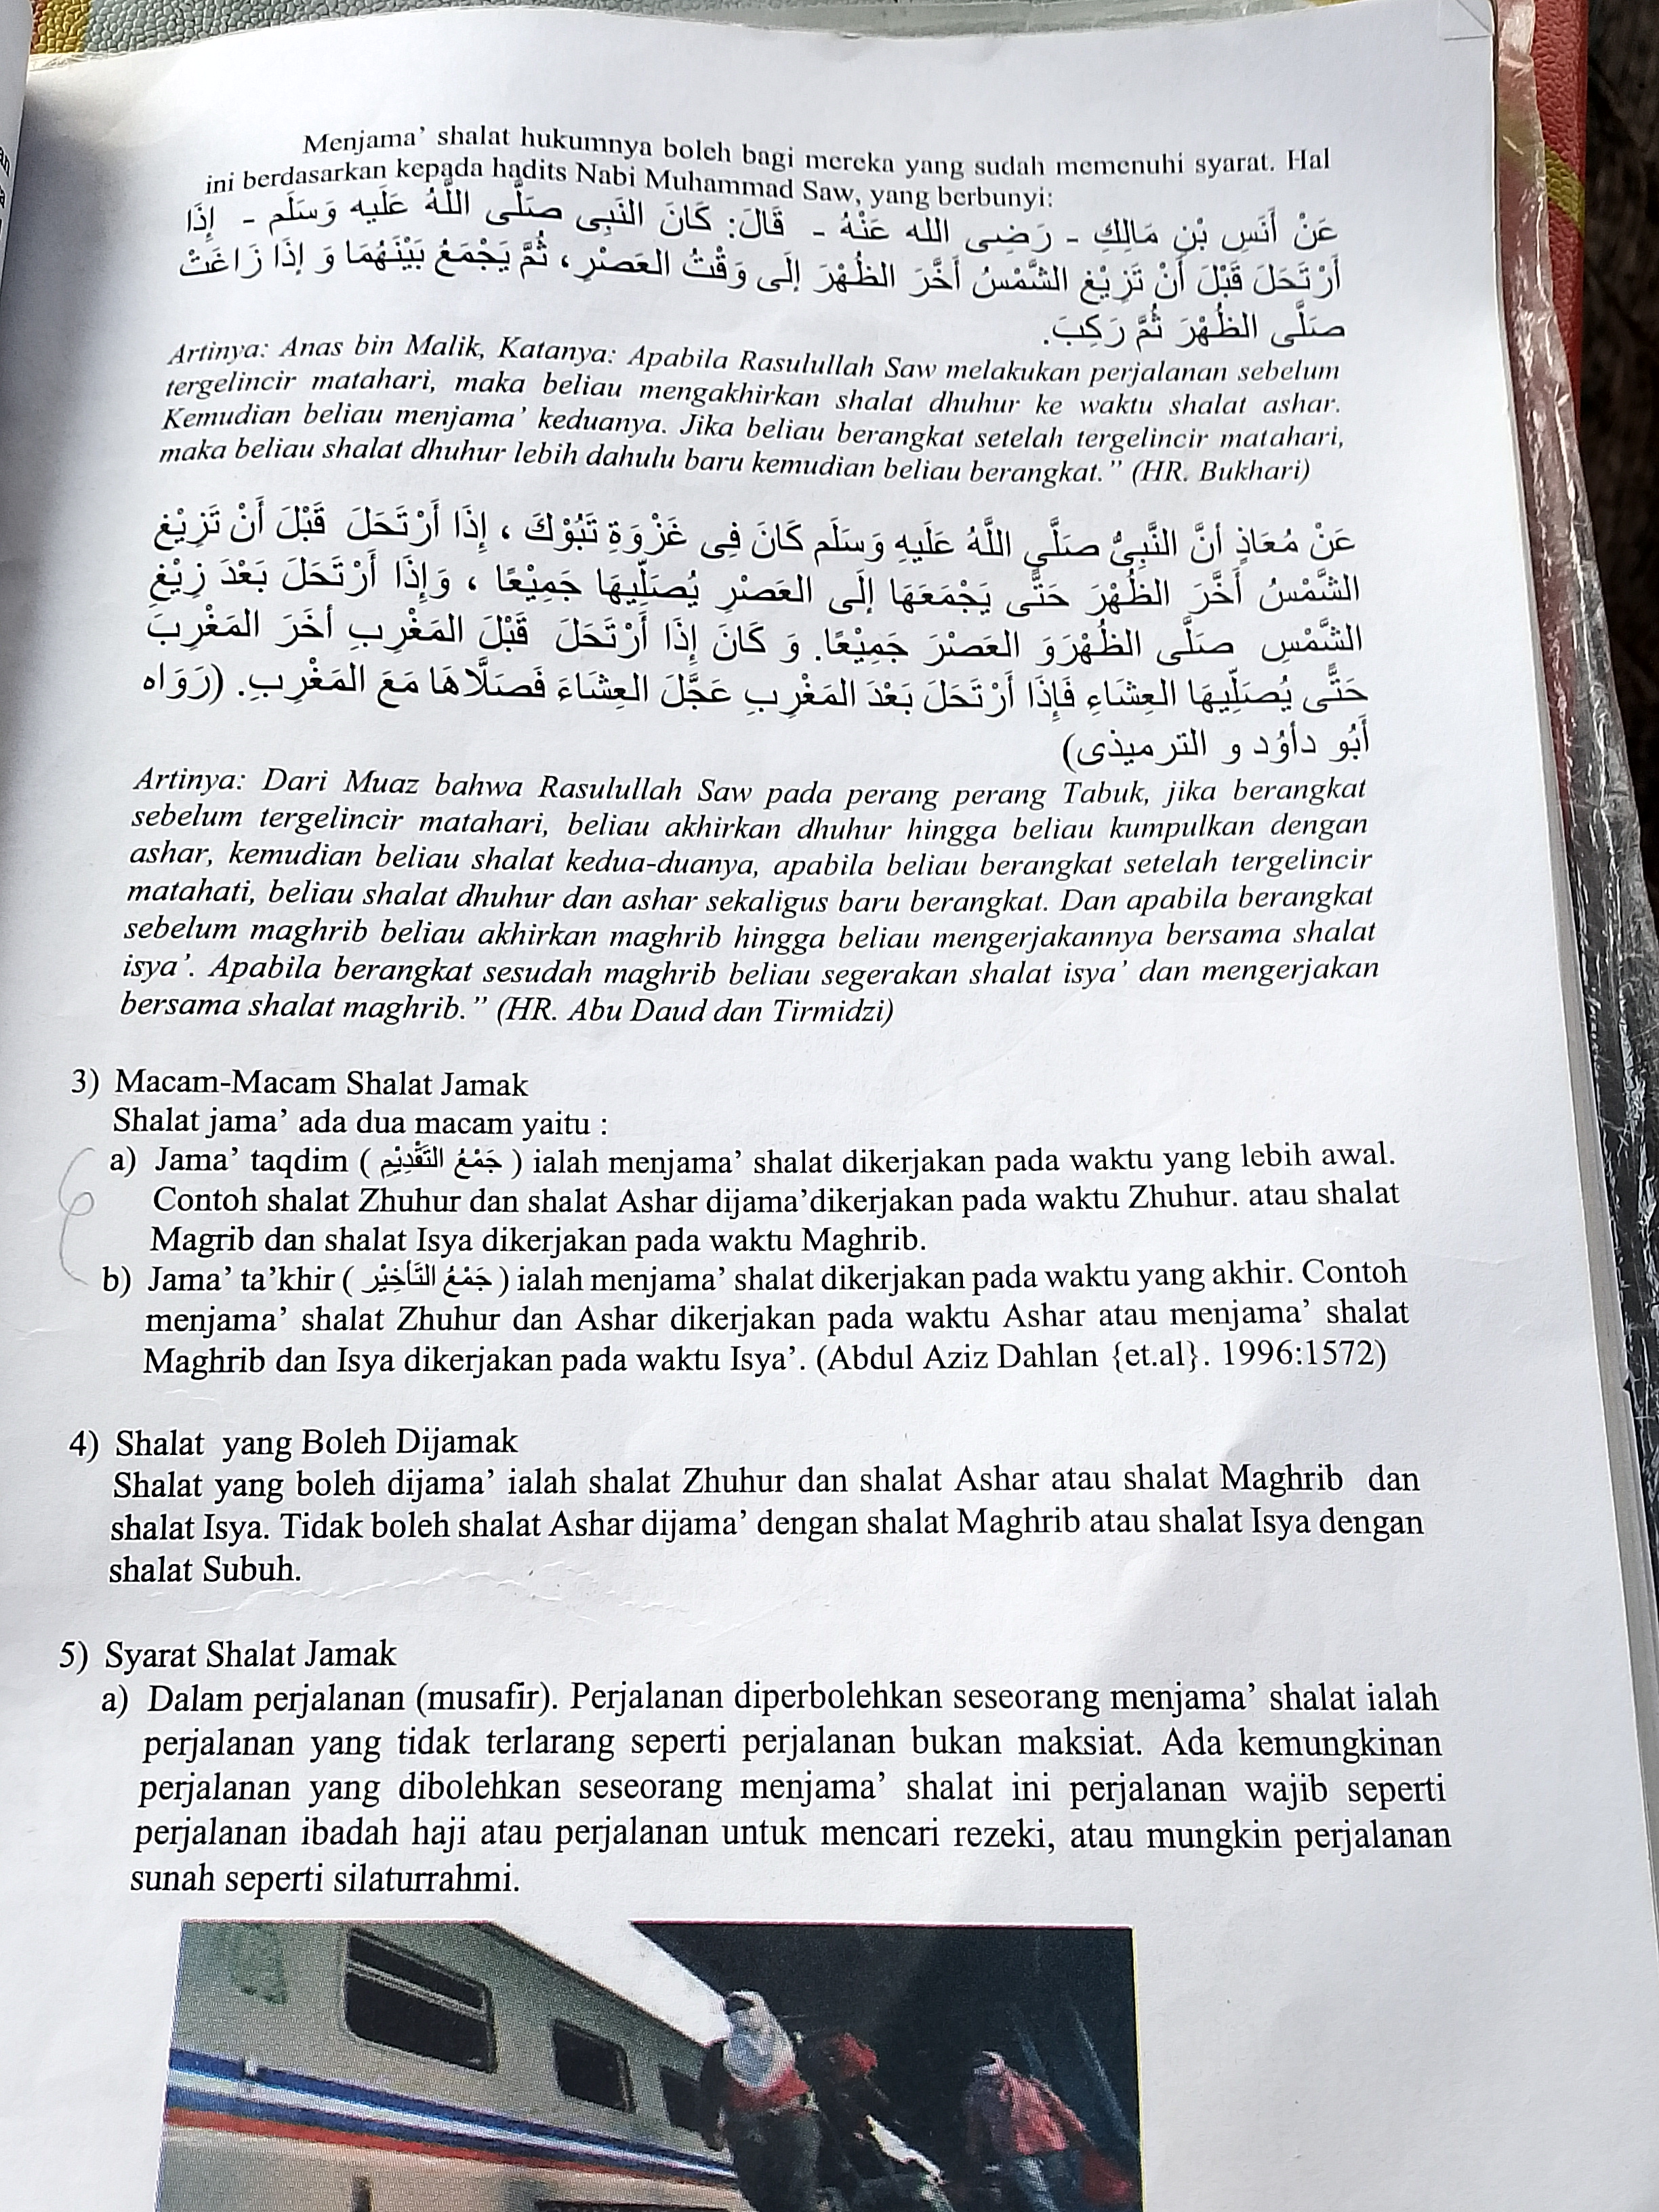 Menjama’ shalat hukumnya boleh bagi mereka yang sudah memenuhi syarat. Hal
ini berdasarkan kepada hadits Nabi Muhammad Saw, yang berbunyi:
عَنْ أَنَسِ بْنِ مَالِكِ - رَضِى الله عَنْهُ - قَالَ: كَانَ النَبِى صَلَّى اللَّهُ عَلَيه وَسَلَم - إِذَا
أَرْتَحَلَ قَبْلَ أَنْ تَزِيْغ الشَّمْسُ أَخَّرَ الظُهْرَ إِلَى وَقْتُ العَصْرِ ، ثُمَّ يَجْمَعُ بَيْنَهُمَا وَ إِذَا زَاغَتْ
صَلَّى الظُهْرَ ثُمَّ رَكِبَ.
Artinya: Anas bin Malik, Katanya: Apabila Rasulullah Saw melakukan perjalanan sebelum
tergelincir matahari, maka beliau mengakhirkan shalat dhuhur ke waktu shalat ashar.
Kemudian beliau menjama’ keduanya. Jika beliau berangkat setelah tergelincir matahari,
maka beliau shalat dhuhur lebih dahulu baru kemudian beliau berangkat.” (HR. Bukhari)
عَنْ مُعَاذٍ أنَّ النَّبِىُّ صَلَّي اللَّهُ عَلَيهِ وَسَلَم كَانَ فِى غَزْوَةِ تَبُوْكَ ، إِذَا أَرْتَحَلَ قَبْلَ أَنْ تَزِيْغ
الشَّمْسُ أَخَّرَ الظُهْرَ حَتَّى يَجْمَعَهَا إِلَى العَصْرِ يُصَلِّيهَا جَمِيْعًا ، وَإِذَا أَرْتَحَلَ بَعْدَ زِيْغِ
الشَّمْسِ صَلَّى الظُهْرَوَ العَصْرَ جَمِيْعًا. وَ كَانَ إِذَا أَرْتَحَلَ قَبْلَ المَغْرِبِ أخَرَ المَغْرِبَ
حَتَّى يُصَلِّيهَا العِشَاءِ فَإِذَا أَرْتَحَلَ بَعْدَ المَغْرِبِ عَجَّلَ العِشَاءَ فَصَلَّاهَا مَعَ المَغْرِبِ. (رَوَاه
أَبُو دأوُد و الترميذى)
Artinya: Dari Muaz bahwa Rasulullah Saw pada perang perang Tabuk, jika berangkat
sebelum tergelincir matahari, beliau akhirkan dhuhur hingga beliau kumpulkan dengan
ashar, kemudian beliau shalat kedua-duanya, apabila beliau berangkat setelah tergelincir
matahati, beliau shalat dhuhur dan ashar sekaligus baru berangkat. Dan apabila berangkat
sebelum maghrib beliau akhirkan maghrib hingga beliau mengerjakannya bersama shalat
isya’. Apabila berangkat sesudah maghrib beliau segerakan shalat isya’ dan mengerjakan
bersama shalat maghrib.” (HR. Abu Daud dan Tirmidzi)
3) Macam-Macam Shalat Jamak
Shalat jama’ ada dua macam yaitu :
a) Jama’ taqdim ( جَمْعُ التَقْدِيْمِ ) ialah menjama’ shalat dikerjakan pada waktu yang lebih awal.
Contoh shalat Zhuhur dan shalat Ashar dijama’dikerjakan pada waktu Zhuhur. atau shalat
Magrib dan shalat Isya dikerjakan pada waktu Maghrib.
b) Jama’ ta’khir ( جَمْعُ التَأخِيْر ) ialah menjama’ shalat dikerjakan pada waktu yang akhir. Contoh
menjama’ shalat Zhuhur dan Ashar dikerjakan pada waktu Ashar atau menjama’ shalat
Maghrib dan Isya dikerjakan pada waktu Isya’. (Abdul Aziz Dahlan {et.al}. 1996:1572)
4) Shalat yang Boleh Dijamak
Shalat yang boleh dijama’ ialah shalat Zhuhur dan shalat Ashar atau shalat Maghrib dan
shalat Isya. Tidak boleh shalat Ashar dijama’ dengan shalat Maghrib atau shalat Isya dengan
shalat Subuh.
5) Syarat Shalat Jamak
a) Dalam perjalanan (musafir). Perjalanan diperbolehkan seseorang menjama’ shalat ialah
perjalanan yang tidak terlarang seperti perjalanan bukan maksiat. Ada kemungkinan
perjalanan yang dibolehkan seseorang menjama’ shalat ini perjalanan wajib seperti
perjalanan ibadah haji atau perjalanan untuk mencari rezeki, atau mungkin perjalanan
sunah seperti silaturrahmi.